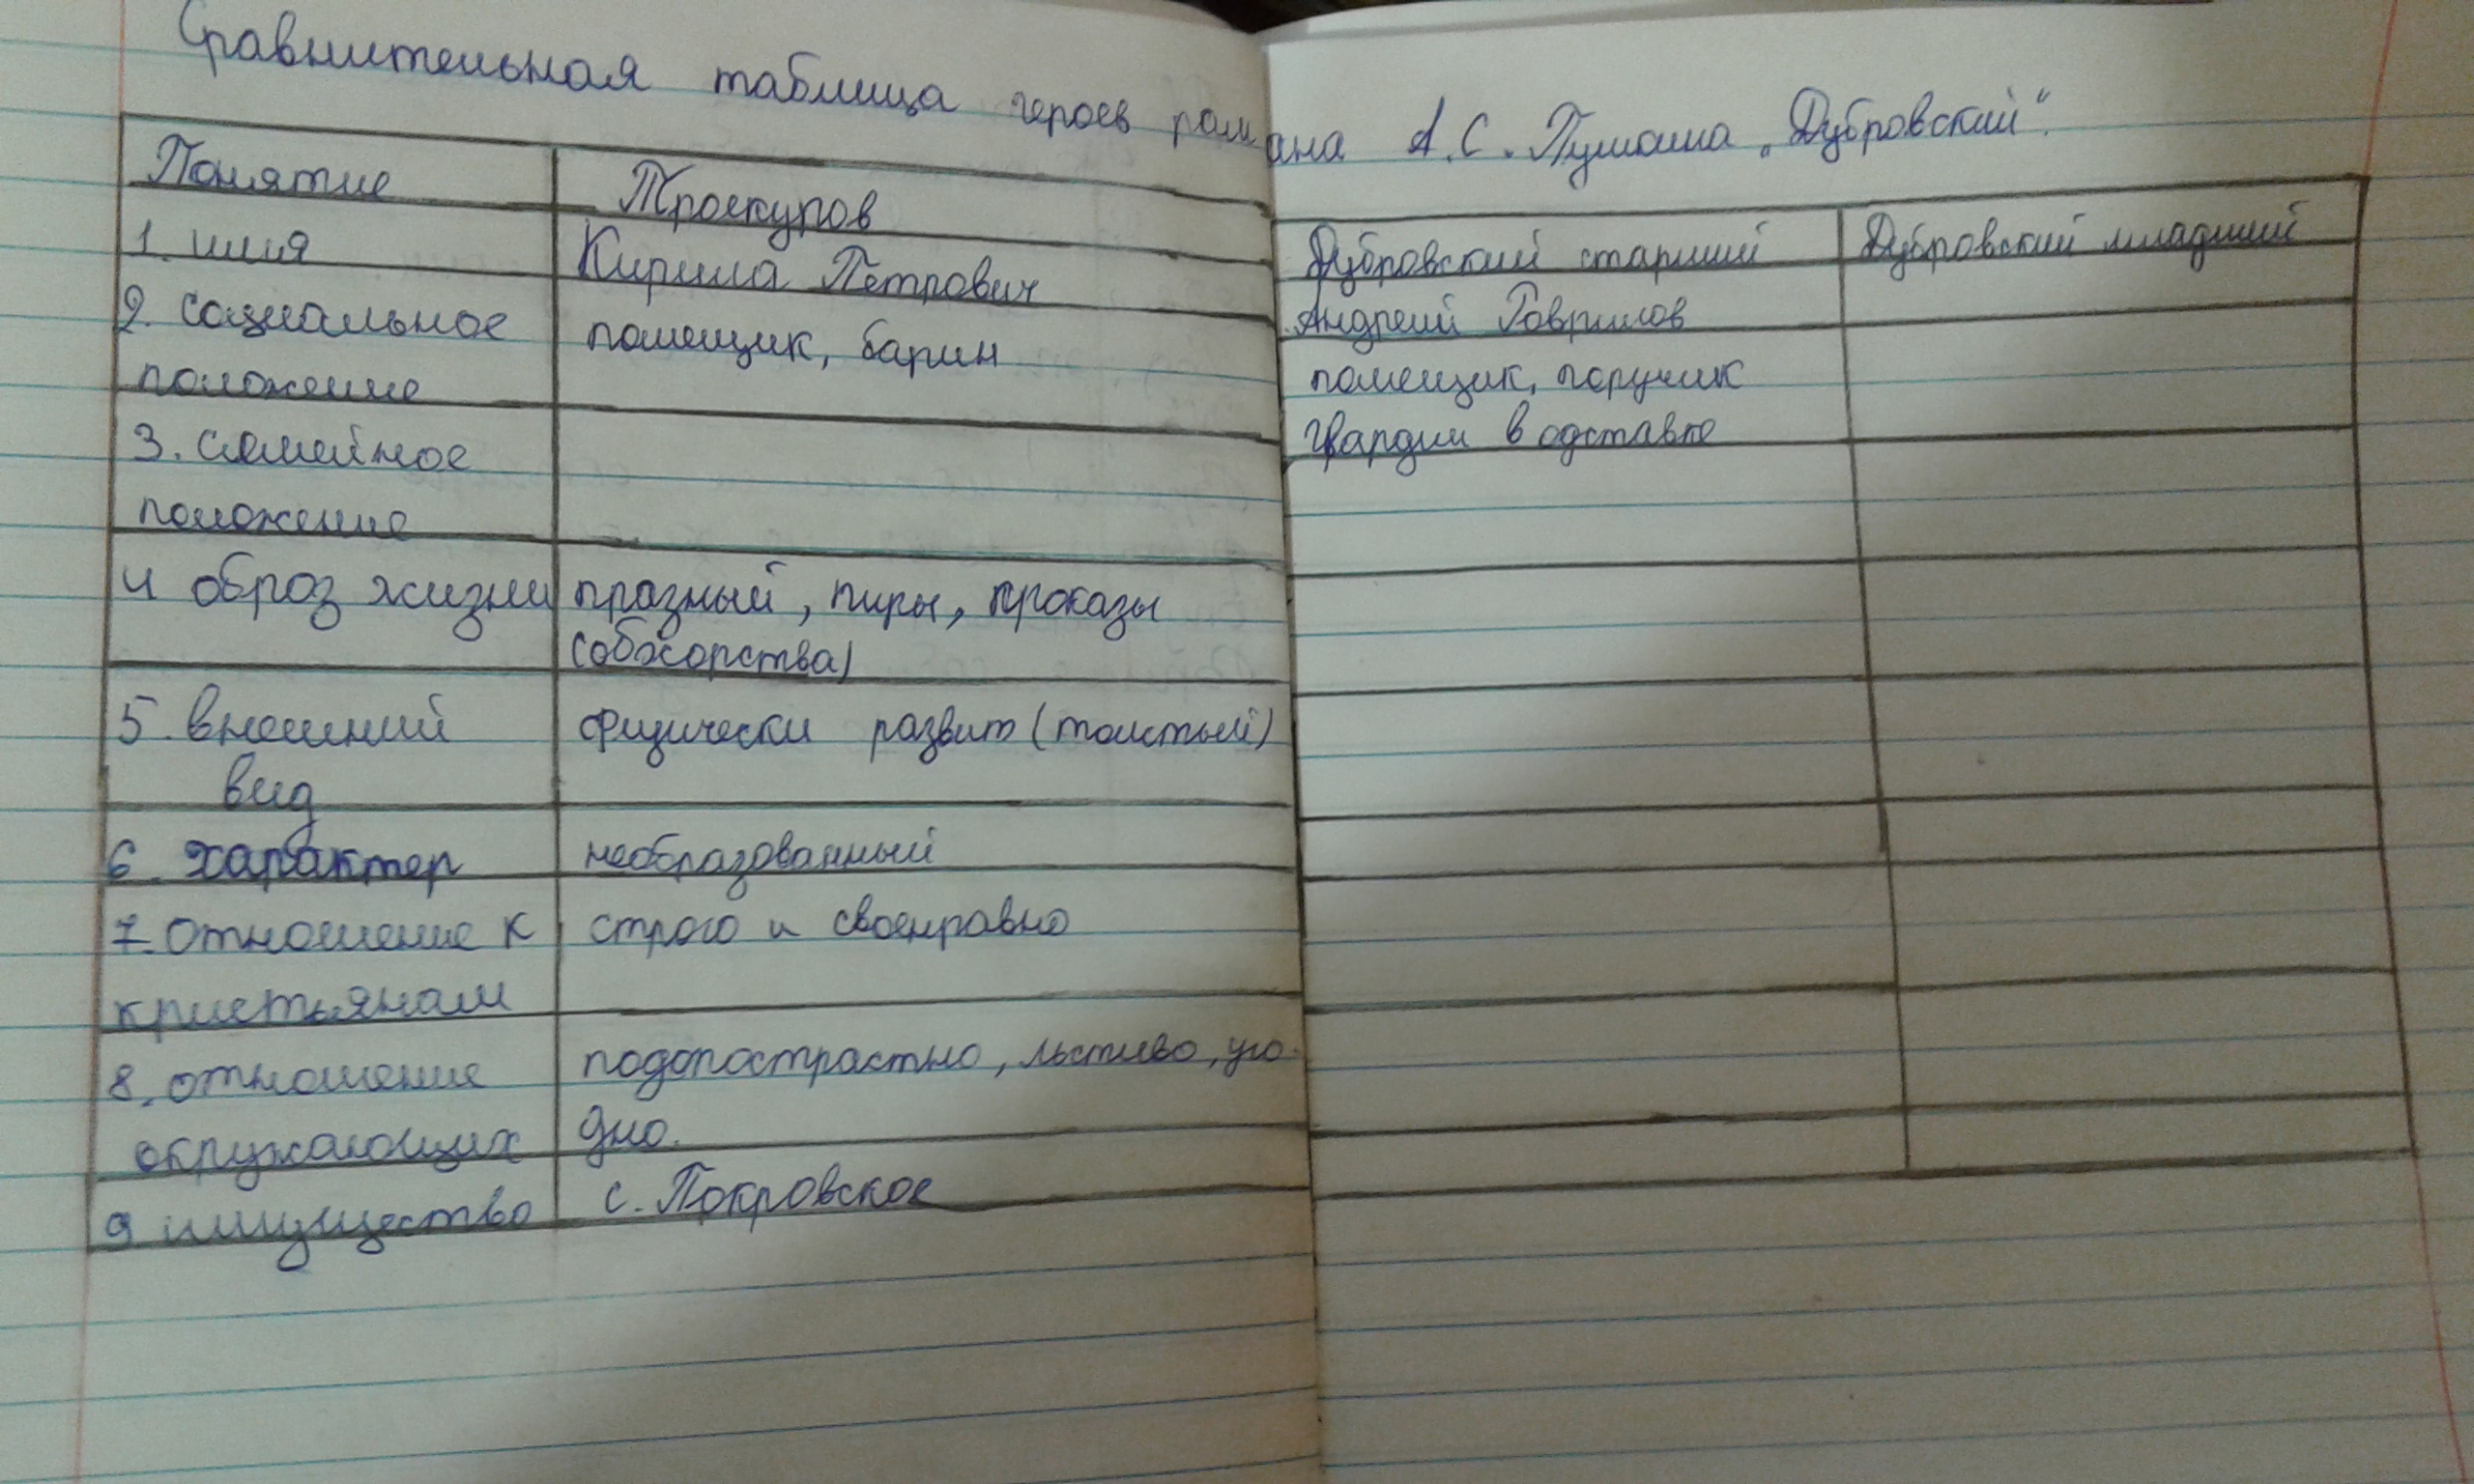 Сравнительная таблица героев романа А.С. Пушкина „Дубровский“.
Понятие
Троекуров
Дубровский старший
Дубровский младший
1. имя
Кирила Петрович
Андрей Гаврилов
2. социальное
положение
помещик, барин
помещик, поручик
гвардии в одставке
3. семейное
положение
4 образ жизни
празный, пиры, проказы
(обжорства)
5. внешний
вид
физически развит (толстый)
6. характер
необразованный
7. отношение к
кристьянам
строго и своенравно
8. отношение
окружающих
подопострастно, льстиво, уго-
дно.
9 имущество
с. Покровское